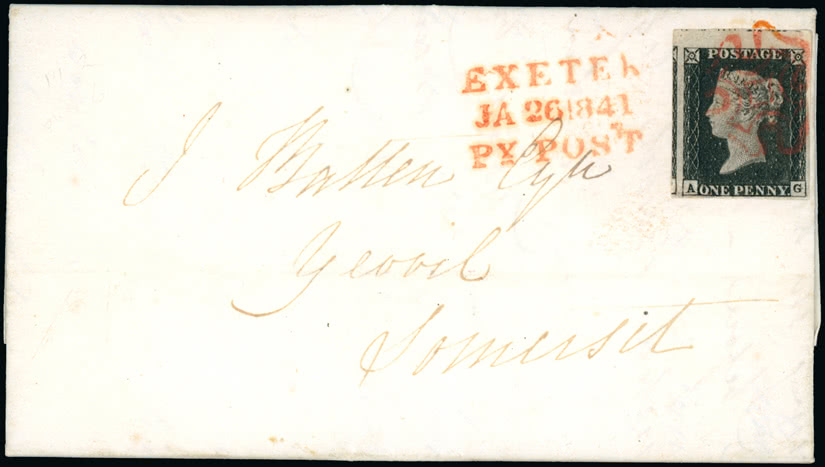 EXETER
JA 26 1841
PY POST
POSTAGE
A ONE PENNY. G
J Batten Esqr
Yeovil
Somerset